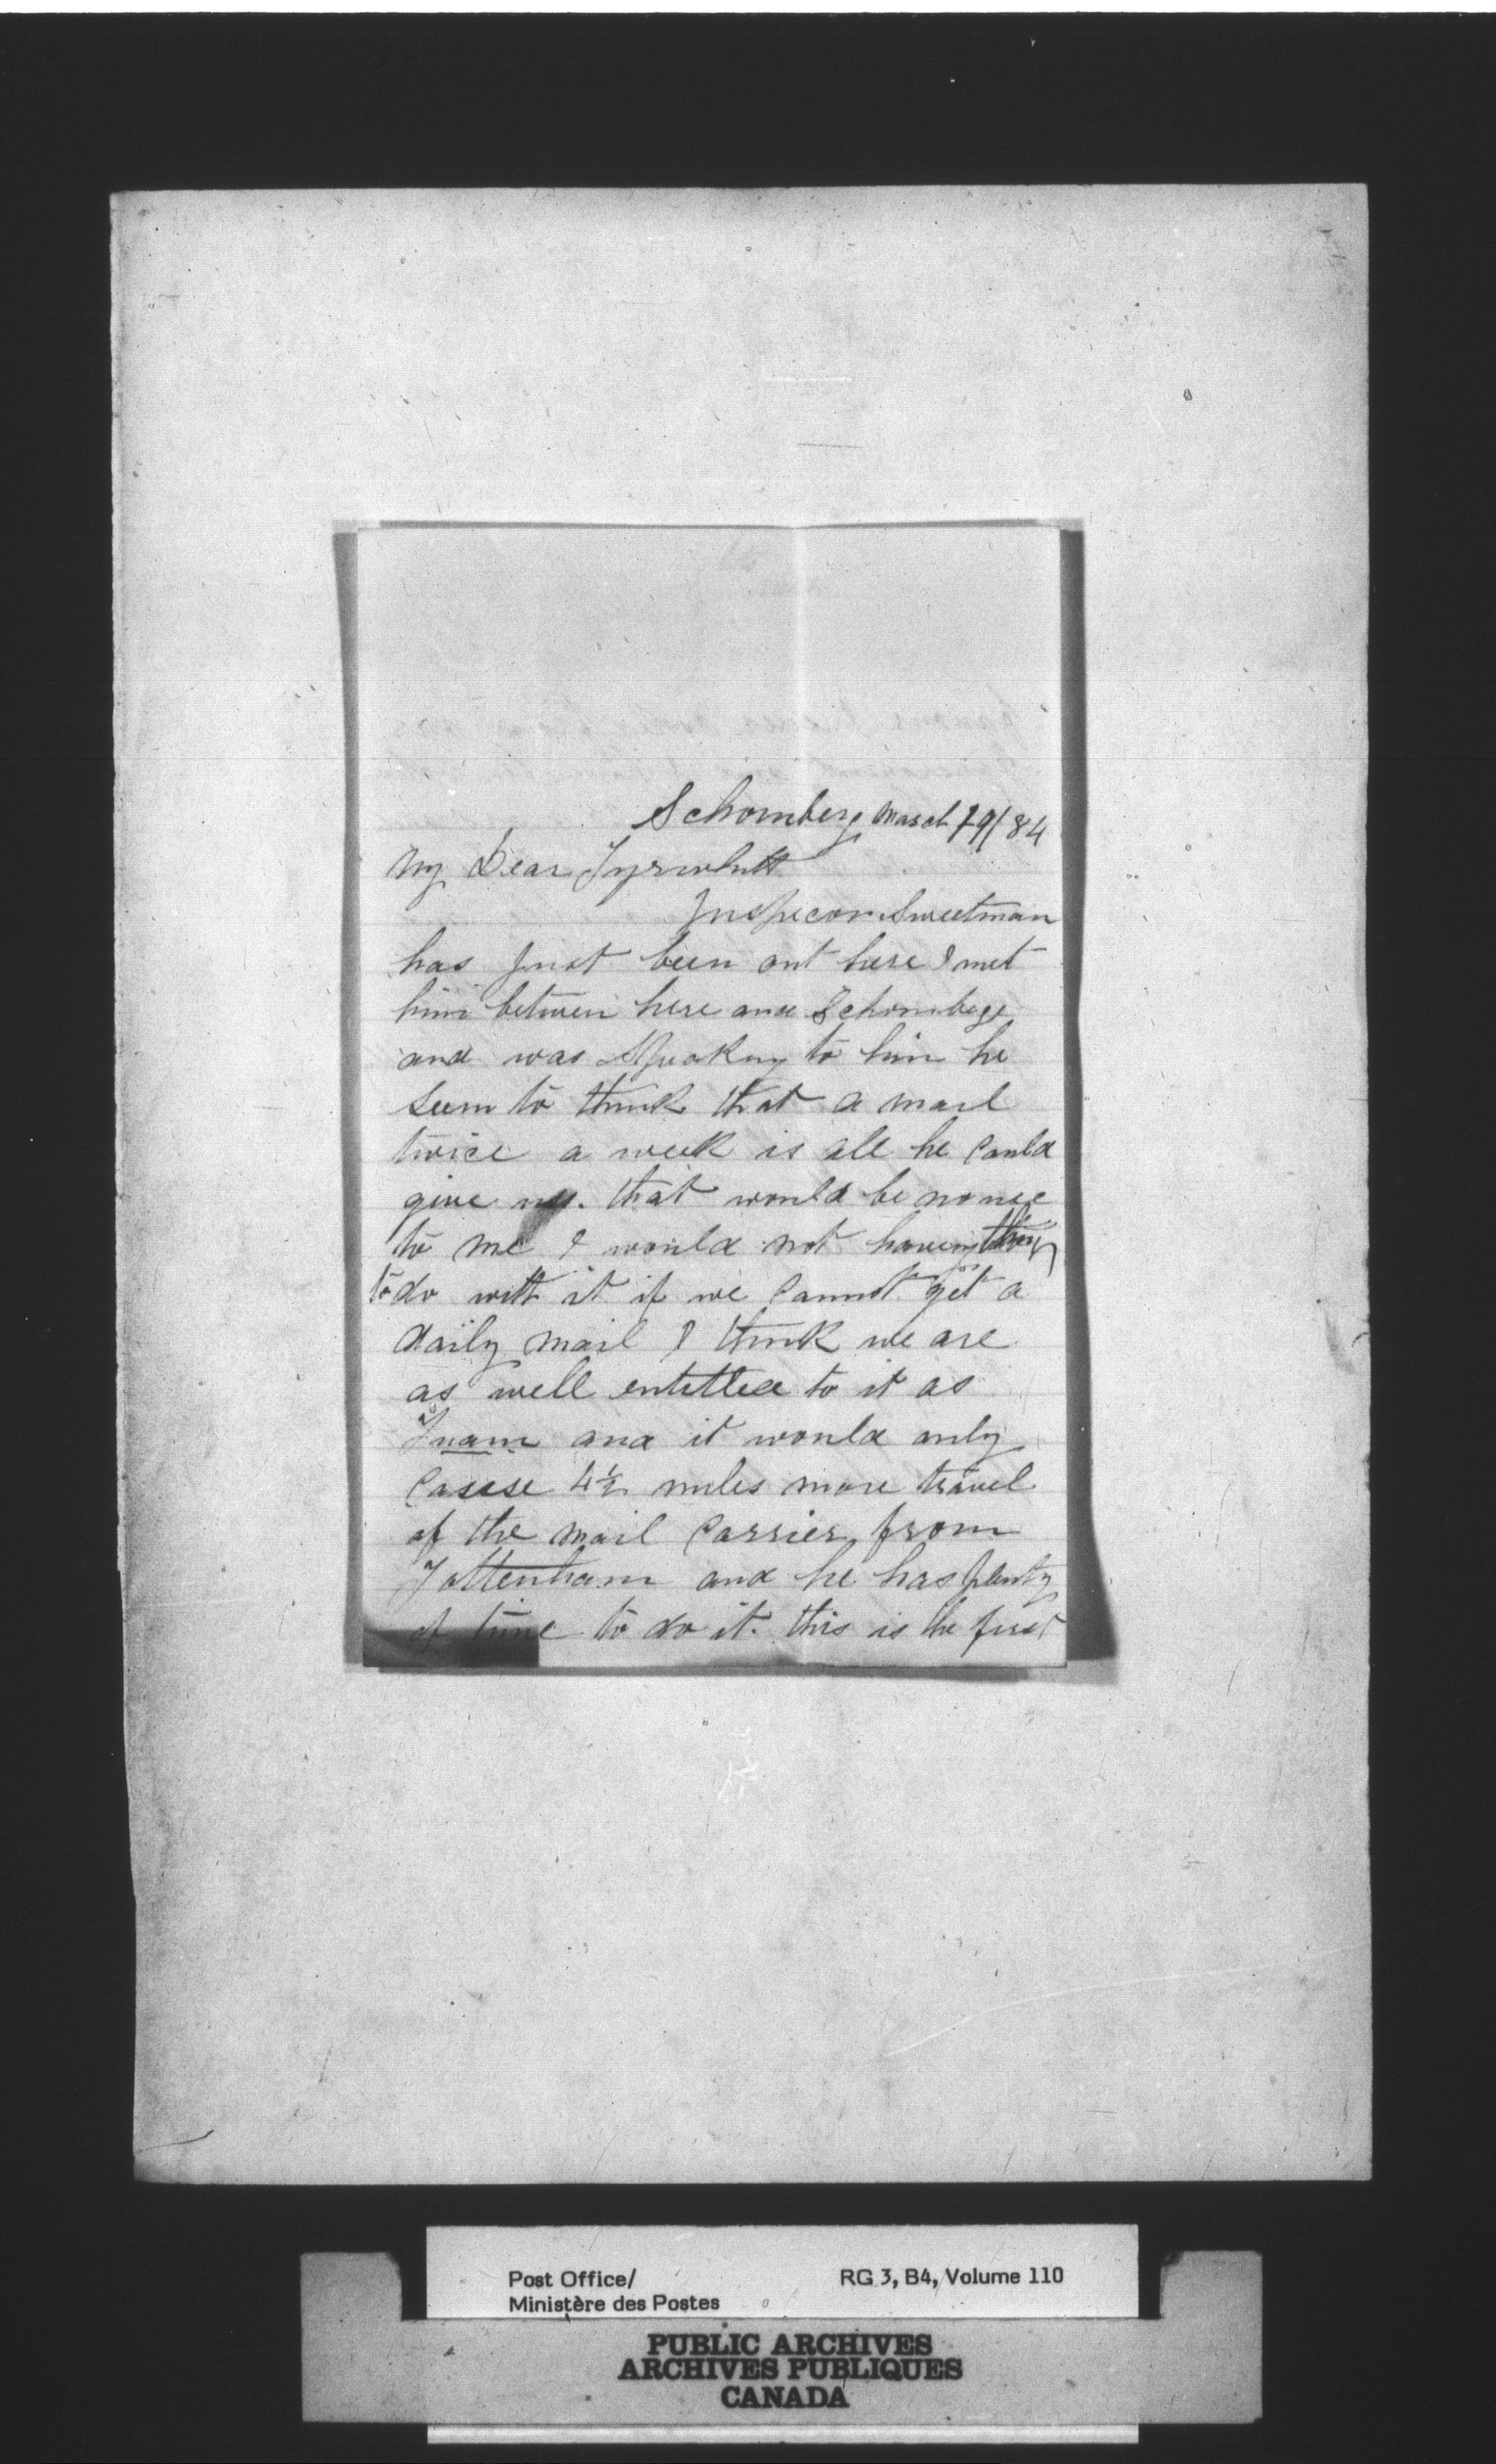 Schomberg March 19/84
My Dear Tyrwhitt
Inspecor Sweetman
has just been out here I met
him between here and Schombege
and was Speaking to him he
seem to think that a mail
twice a week is all he Could
give us. that would be no use
to me I would not have any thing
to do with it if we Cannot get a
daily mail I think we are
as well entitled to it as
and it would only
Casese 4½ miles more travel
of the mail Carrier from
Tottenham and he has plenty
of time to do it. this is the first
Post Office/ RG 3, B4, Volume 110
Ministère des Postes
PUBLIC ARCHIVES
ARCHIVES PUBLIQUES
CANADA